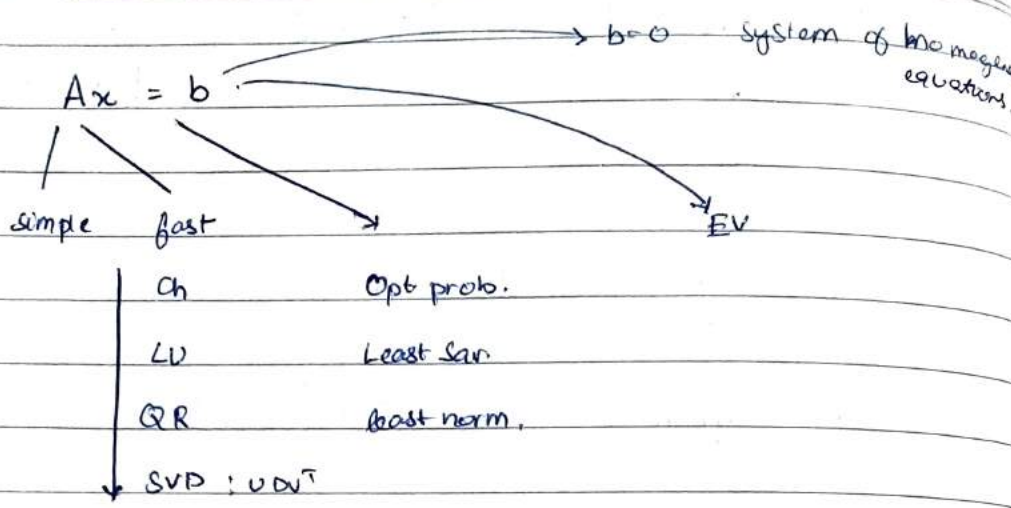 b=0 system of homogen
equations.
Ax = b
simple fast
EV
Ch Opt prob.
LU Least Sqr.
QR least norm.
SVD : UDVT